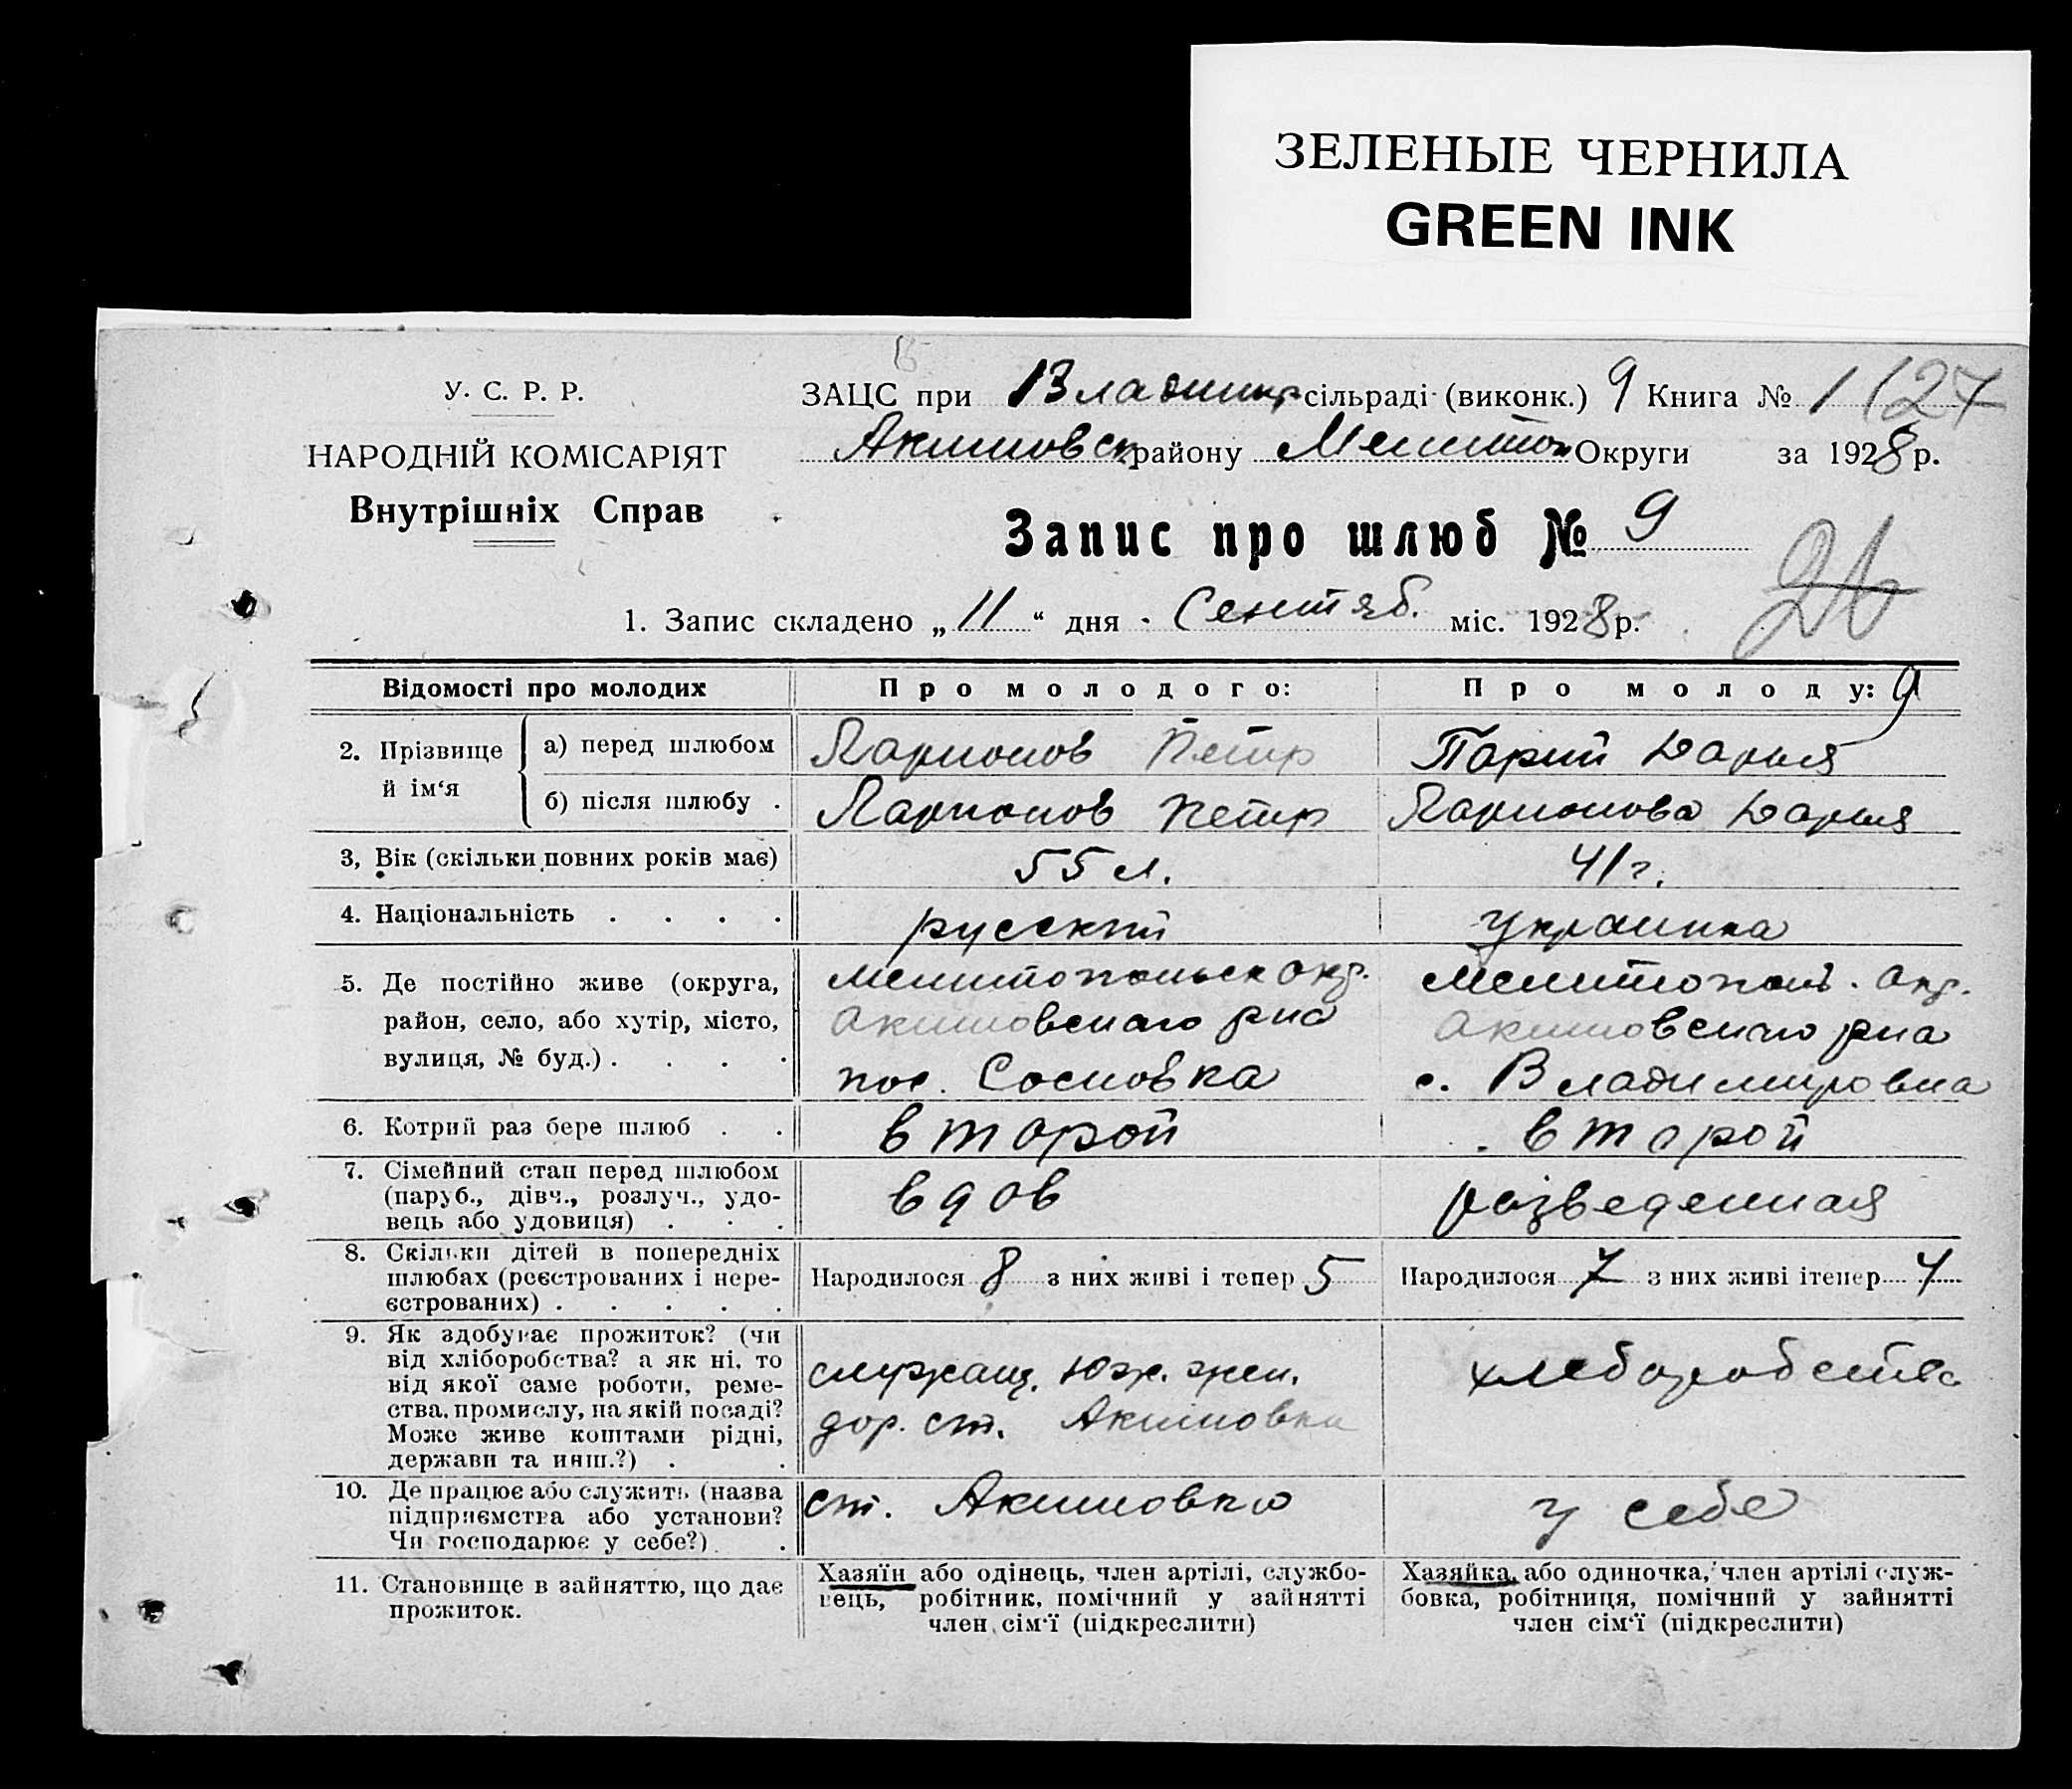 ЗЕЛЕНЫЕ ЧЕРНИЛА
GREEN INK
У. С. Р. Р.
НАРОДНІЙ КОМІСАРІЯТ
Внутрішніх Справ
ЗАЦС при Владимир сільраді (виконк.) 9 Книга № 1 127
Акимовск району Мелитоп Округи за 1928 р.
Запис про шлюб № 9
26
1. Запис складено „11“ дня Сентяб. міс. 1928 р.
Відомості про молодих
Про молодого:
Про молоду: 9
2. Прізвище й ім‘я
а) перед шлюбом
Ларионов Петр
Парий Дарья
б) після шлюбу .
Ларионов Петр
Ларионова Дарья
3, Вік (скільки повних років має)
55 л.
41 г.
4. Національність . . . .
русский
украинка
5. Де постійно живе (округа,
район, село, або хутір, місто,
вулиця, № буд.) . . . .
Мелитопольск окр.
Акимовского рна
пос. Сосновка
Мелитополь. окр.
Акимовского рна
с. Владимировка
6. Котрий раз бере шлюб . .
второй
второй
7. Сімейний стан перед шлюбом
(паруб., дівч., розлуч., удо-
вець або удовиця) . . .
вдов
разведенная
8. Скільки дітей в попередніх
шлюбах (реєстрованих і нере-
єстрованих) . . . . .
Народилося 8 з них живі і тепер 5
Народилося 7 з них живі ітепер 4
9. Як здобуває прожиток? (чи
від хліборобства? а як ні, то
від якої саме роботи, реме-
ства, промислу, на якій посаді?
Може живе коштами рідні,
держави та инш.?) . .
служащ. Юж. жел.
дор. ст. Акимовка
хлеборобство
10. Де працює або служить (назва
підприємства або установи?
Чи господарює у себе?) . .
ст. Акимовка
у себе
11. Становище в зайняттю, що дає
прожиток.
Хазяїн або одінець, член артілі, службо-
вець, робітник, помічний у зайнятті
член сім‘ї (підкреслити)
Хазяйка, або одиночка, член артілі служ-
бовка, робітниця, помічний у зайнятті
член сім‘ї (підкреслити)